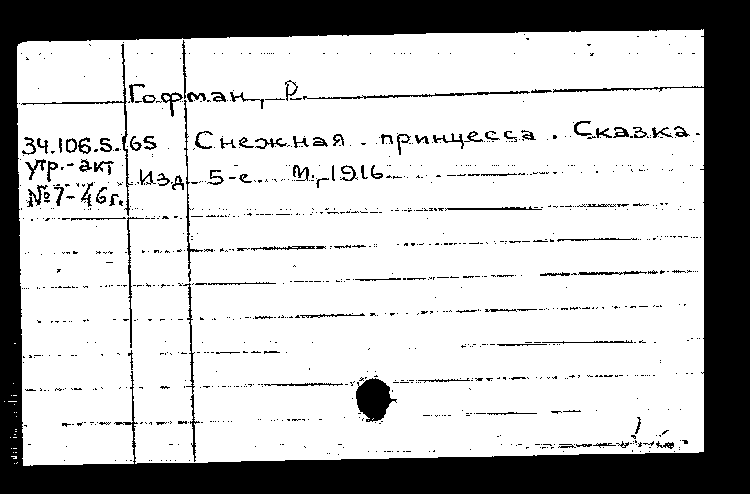 Гофман, Р.
34.106.5.165 Снежная принцесса. Сказка.
утр.-акт Изд. 5-е. М., 1916.
№7-46г.